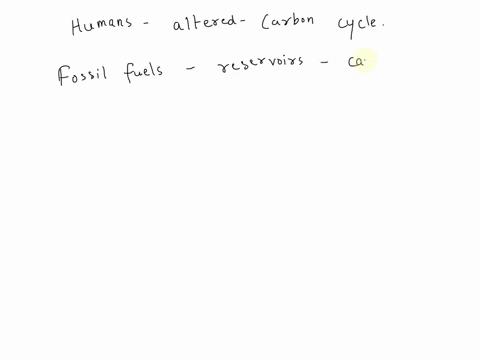 Humans - altered - Carbon cycle.
Fossil fuels - reservoirs - ca